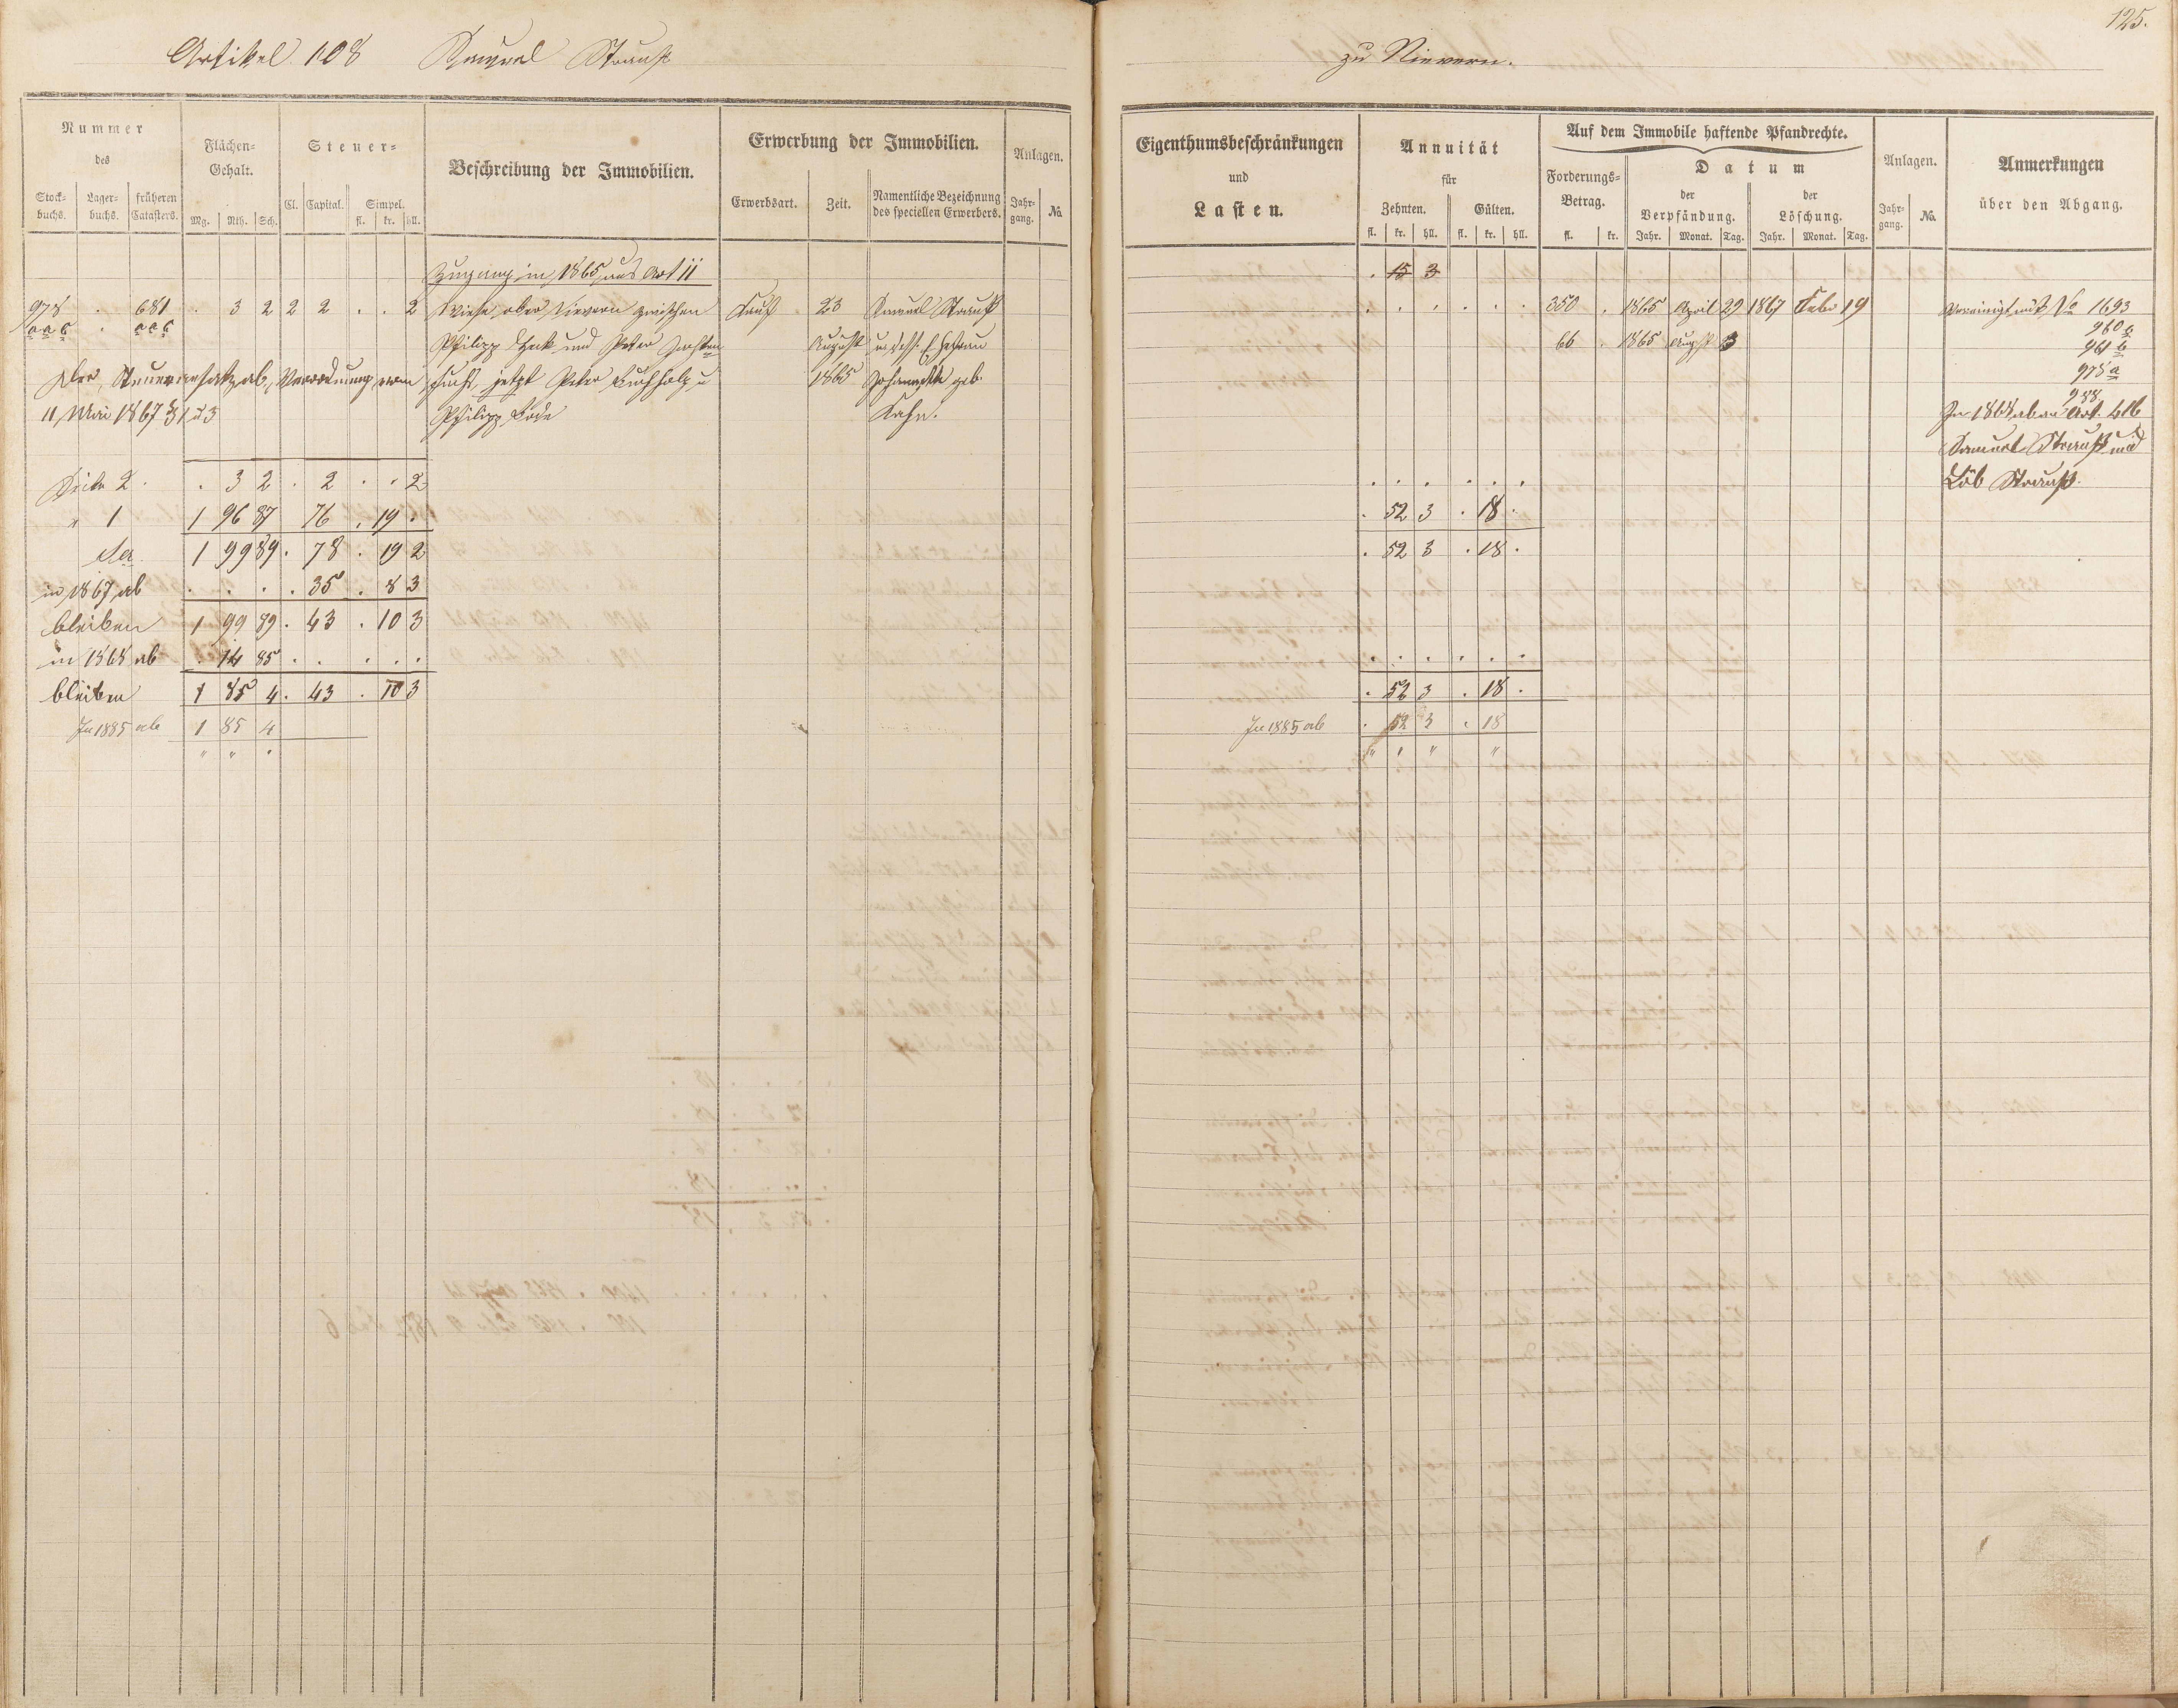 125.
Artikel 108 Samuel Strauß zu Nievern.
Nummer
des
Stock-
buchs.
Lager-
buchs.
früheren
Catasters.
Flächen-
Gehalt.
Mg. Rth. Sch.
Steuer-
Cl. Capital. Simpel.
fl. kr. hll.
Beschreibung der Immobilien.
Erwerbung der Immobilien.
Erwerbsart. Zeit.
Namentliche Bezeichnung
des speciellen Erwerbers.
Anlagen.
Jahr-
gang.
No.
Eigenthumsbeschränkungen
und
Lasten.
Annuität
für
Zehnten. Gülten.
fl. kr. hll. fl. kr. hll.
Auf dem Immobile haftende Pfandrechte.
Forderungs-
Betrag.
fl. kr.
Datum
der
Verpfändung.
Jahr. Monat. Tag.
der
Löschung.
Jahr. Monat. Tag.
Anlagen.
Jahr-
gang.
No.
Anmerkungen
über den Abgang.
Zugang in 1865 aus Art 11
. 15 3
978 . 681 . 3 2 2 2 . . 2 Wiese ober Nievern zwischen Kauf 23 Samuel Strauß . . . . . . 350 . 1865 April 29 1867 Febr 19 Vereinigt mit No 1693
a a c . a a c Philipp Heck und Peter August u. dess. Ehefrau 66 . 1865 August 3 960 a
961 b
Der Steueransatz ab, Verordnung vom jetzt Peter Buchholz u 1865 Johannette geb. 975 a
11 Mai 1867 § 1 u 3 Philipp Kahn. 988
In 1868 ab an Art. 416
Samuel Strauß und
Löb Strauß.
Seite 2 . . 3 2 . 2 . . 2 . . . . . .
" 1 1 96 87 76 . 19 . . 52 3 . 18 .
1 99 89 . 78 . 19 2 . 52 3 . 18 .
in 1867 ab . . . . 35 . 8 3
bleiben 1 99 89 . 43 . 10 3
in 1868 ab . 14 85 . . . . . . . . . . .
bleiben 1 85 4 . 43 . 10 3 . 52 3 . 18 .
In 1885 ab 1 85 4 In 1885 ab . 52 3 . 18
" " " " " " "